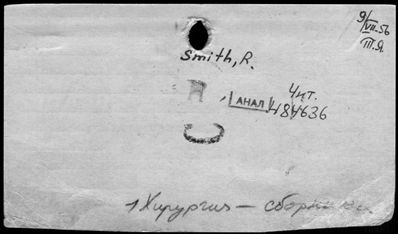 9/VII-56
III.Я.
Smith, R.
Чит.
АНАЛ 484636
1 Хирургия — сборники